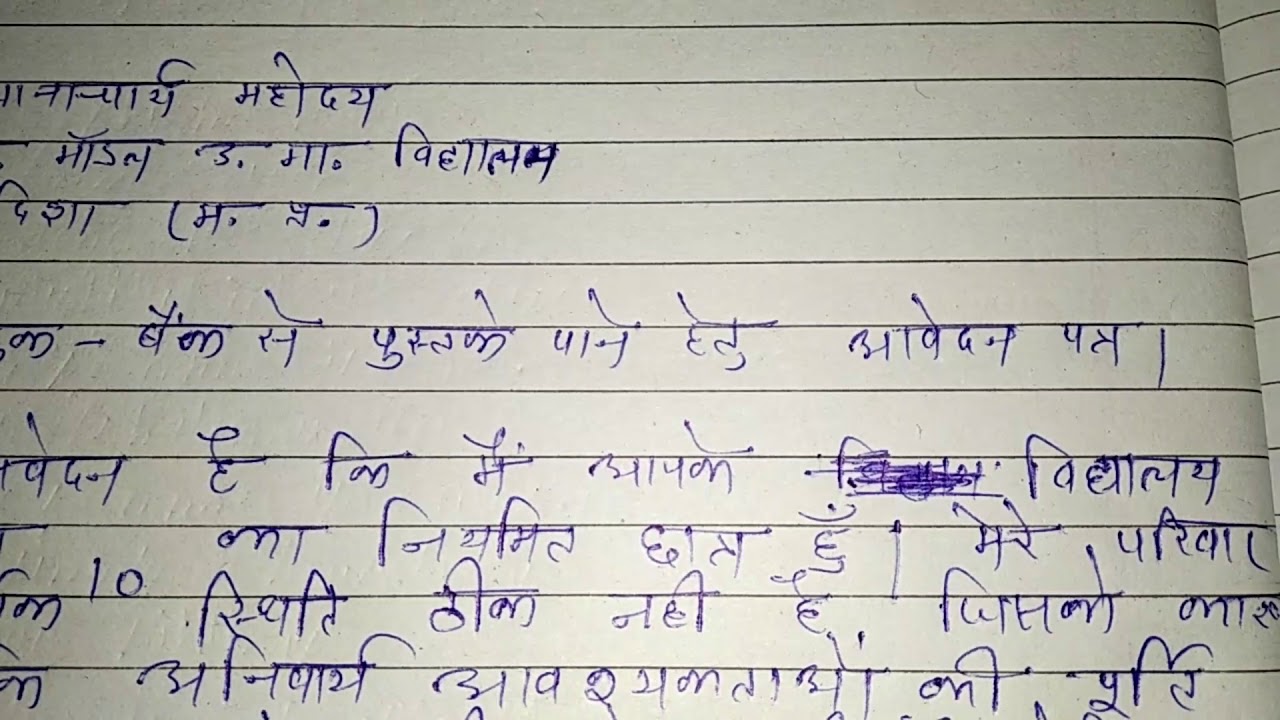 महोदय
मॉडल उ. मा. विद्यालय
दिशा (म. प्र.)
क - बैंक से पुस्तके पाने हेतु आवेदन पत्र।
वेदन है कि मैं आपके विद्यालय
का नियमित छात्र हूँ। मेरे परिवार
10
क स्थिति ठीक नही है, जिसको कार
के अनिवार्य आवश्यकताओं की पूर्ति